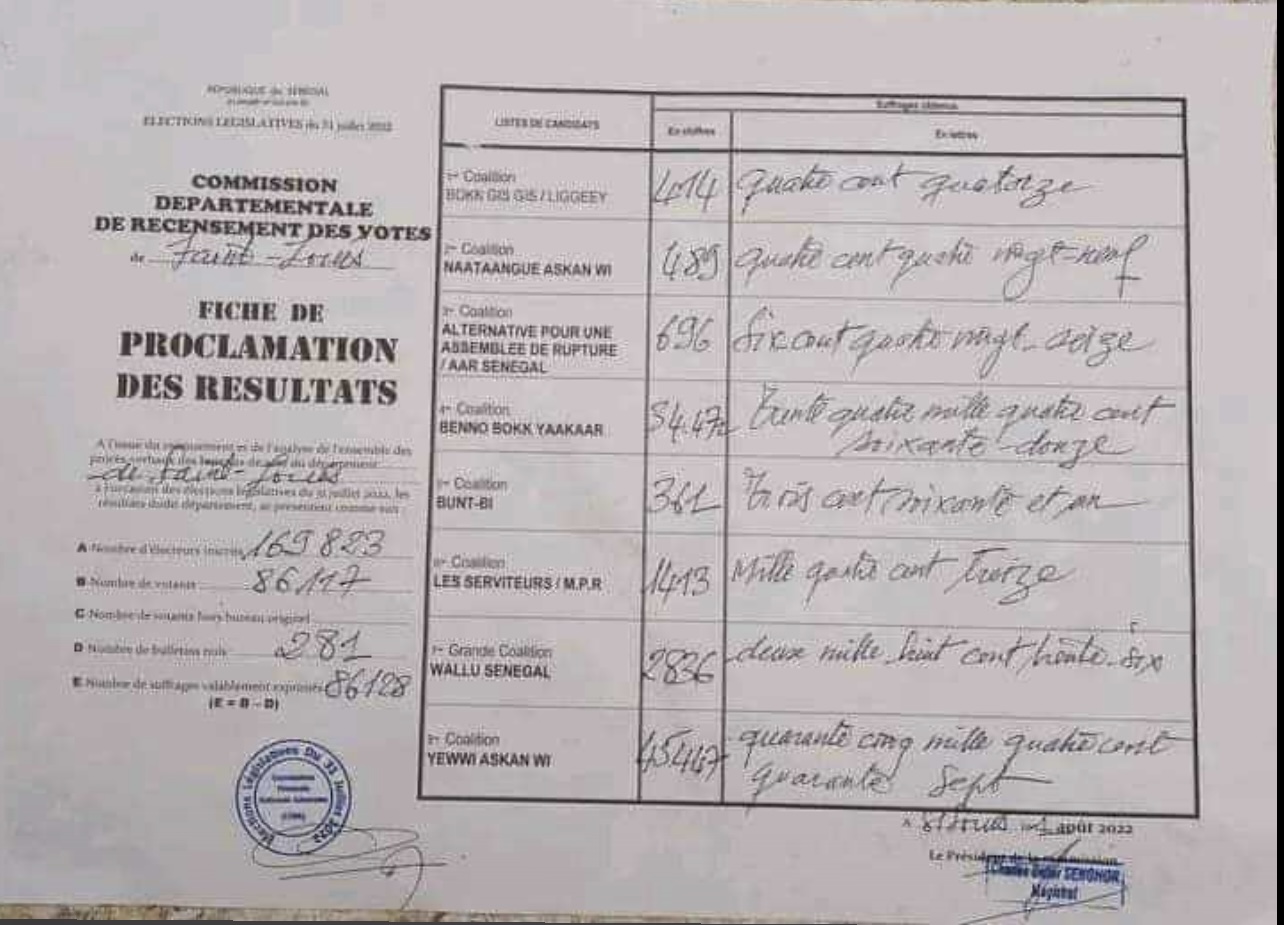 REPUBLIQUE du SENEGAL
ELECTIONS LEGISLATIVES du 31 juillet 2022
COMMISSION
DEPARTEMENTALE
DE RECENSEMENT DES VOTES
de Saint-Louis
FICHE DE
PROCLAMATION
DES RESULTATS
A l'issue du recensement et de l'analyse de l'ensemble des
procès-verbaux des bureaux de vote du département
de Saint-Louis
à l'occasion des élections législatives du 31 juillet 2022, les
résultats dudit département, se présentent comme suit :
A Nombre d'électeurs inscrits 169 823
B Nombre de votants 86117
C Nombre de votants hors bureau originel
D Nombre de bulletins nuls 281
E Nombre de suffrages valablement exprimés 86128
(E = B - D)
LISTES DE CANDIDATS
Suffrages obtenus
En chiffres
En lettres
Coalition
BOKK GIS GIS / LIGGEEY
414 quatre cent quatorze
Coalition
NAATAANGUE ASKAN WI
489 quatre cent quatre vingt-neuf
Coalition
ALTERNATIVE POUR UNE
ASSEMBLEE DE RUPTURE
/ AAR SENEGAL
696 Six cent quatre vingt-seize
Coalition
BENNO BOKK YAAKAAR
34.472 Trente quatre mille quatre cent
soixante-douze
Coalition
BUNT-BI
361 Trois cent soixante et un
Coalition
LES SERVITEURS / M.P.R
1413 Mille quatre cent Treize
Grande Coalition
WALLU SENEGAL
2836 deux mille huit cent trente-six
Coalition
YEWWI ASKAN WI
45447 quarante cinq mille quatre cent
quarante Sept
Elections Législatives Du 31 Juillet 2022
A St Louis le 1 août 2022
Le Président de la commission
SENGHOR
Magistrat